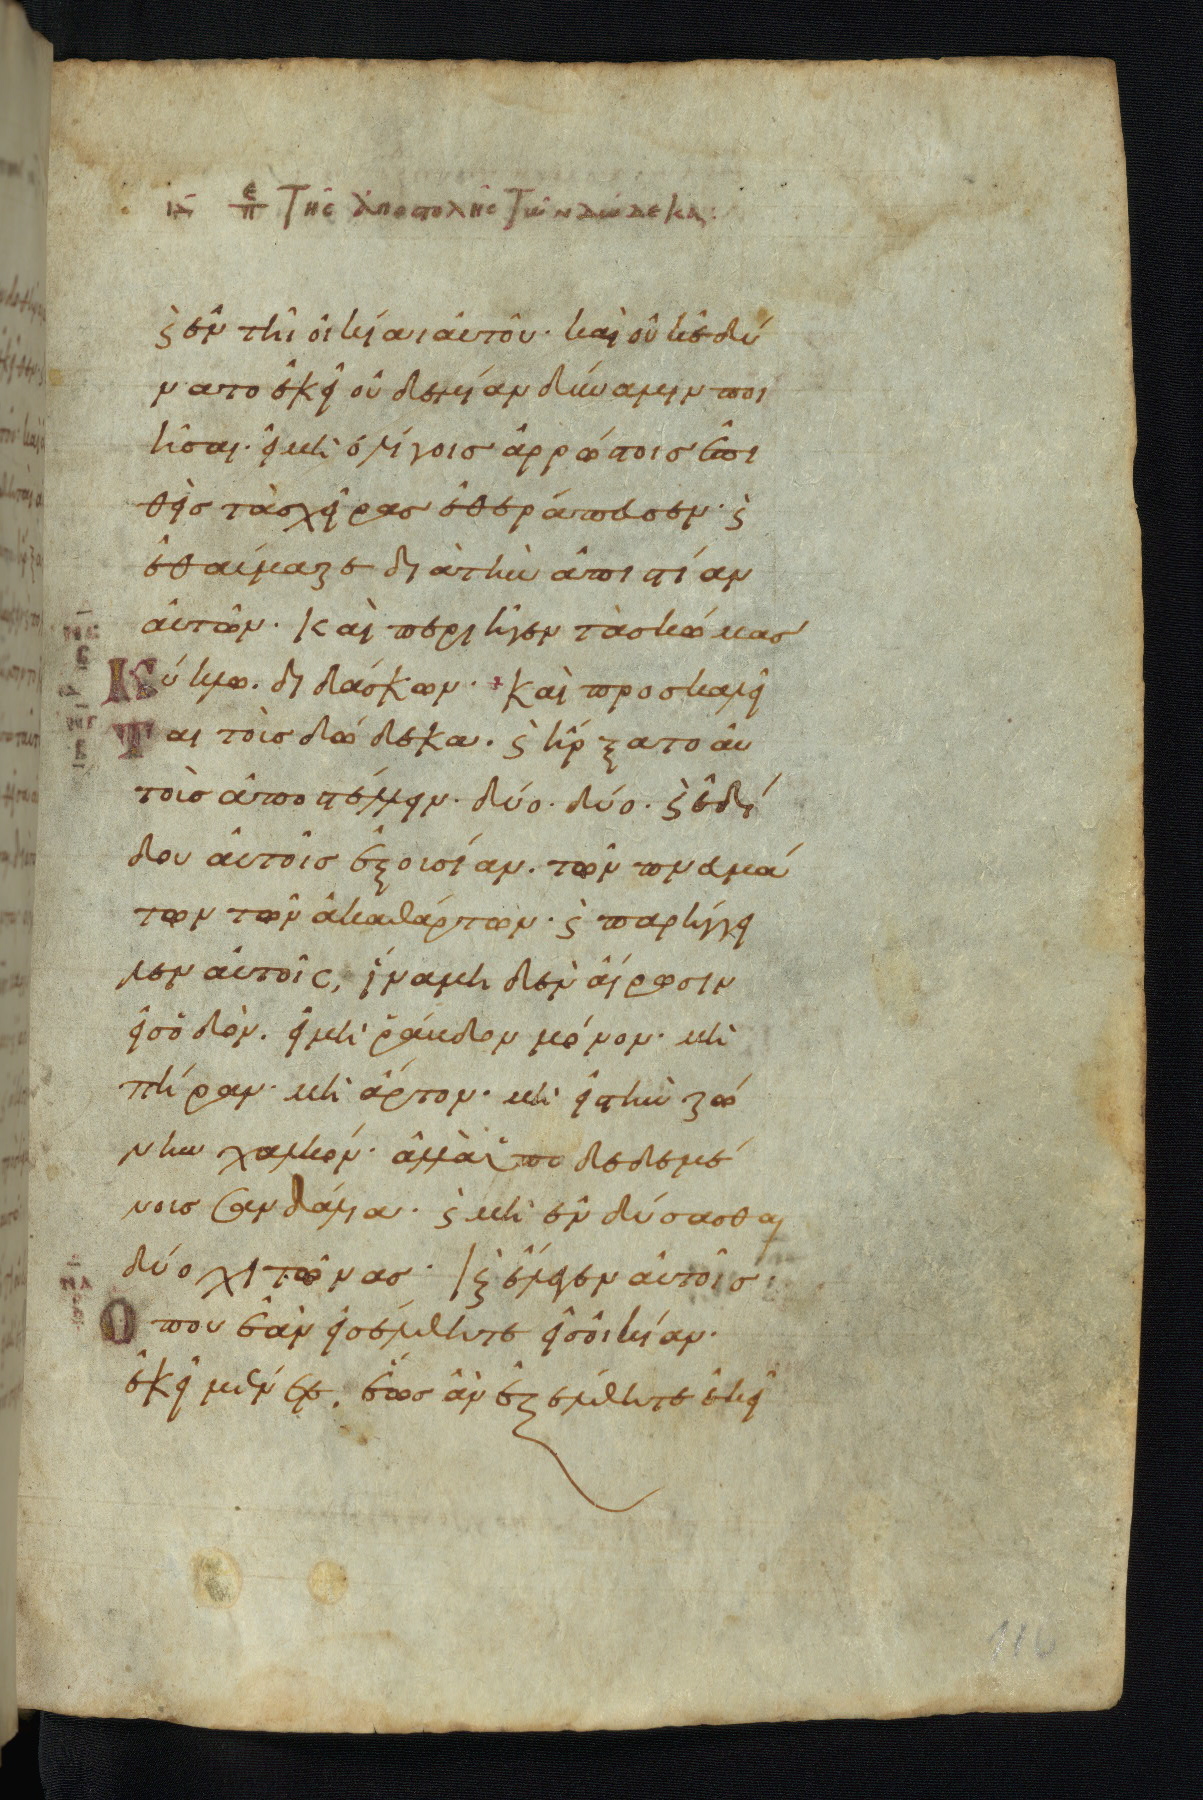 ιδ επ Της ἀποστολῆς τῶν δώδεκα:
ϛ ἐν τῆ οἰκίαι αὐτοῦ· καὶ οὐκ ἐδύ
νατο ἐκεῖ οὐδεμίαν δύναμιν ποι
ῆσαι· εἰ μὴ ὀλίγοις ἀρρώστοις ἐπι
θεὶς τὰς χεῖρας ἐθεράπευσεν· ϛ
ἐθαύμαζε διὰ τὴν ἀπιστίαν
αὐτῶν· Καὶ περιῆγεν τὰς κώμας
Κύκλω. διδάσκων· + Καὶ προσκαλεῖ
Ται τοὺς δώδεκα. ϛ ἤρξατο αὐ
τοὺς ἀποστέλλειν· δύο· δύο· ϛ ἐδί
δου αὐτοῖς ἐξουσίαν. τῶν πνευμά
των τῶν ἀκαθάρτων· ϛ παρήγγει
λεν αὐτοῖς, ἵνα μηδὲν αἴρωσιν
εἰς ὁδὸν. εἰ μὴ ῥάβδον μόνον· μὴ
πήραν· μὴ ἄρτον· μὴ εἰς τὴν ζώ
νην χαλκόν· ἀλλὰ ὑποδεδεμέ
νους σανδάλια· ϛ μὴ ἐνδύσασθαι
δύο χιτῶνας· ϛ ἔλεγεν αὐτοῖς·
Οπου ἐὰν εἰσέλθητε εἰς οἰκίαν·
ἐκεῖ μένετε. ἕως ἂν ἐξέλθητε ἐκεῖ